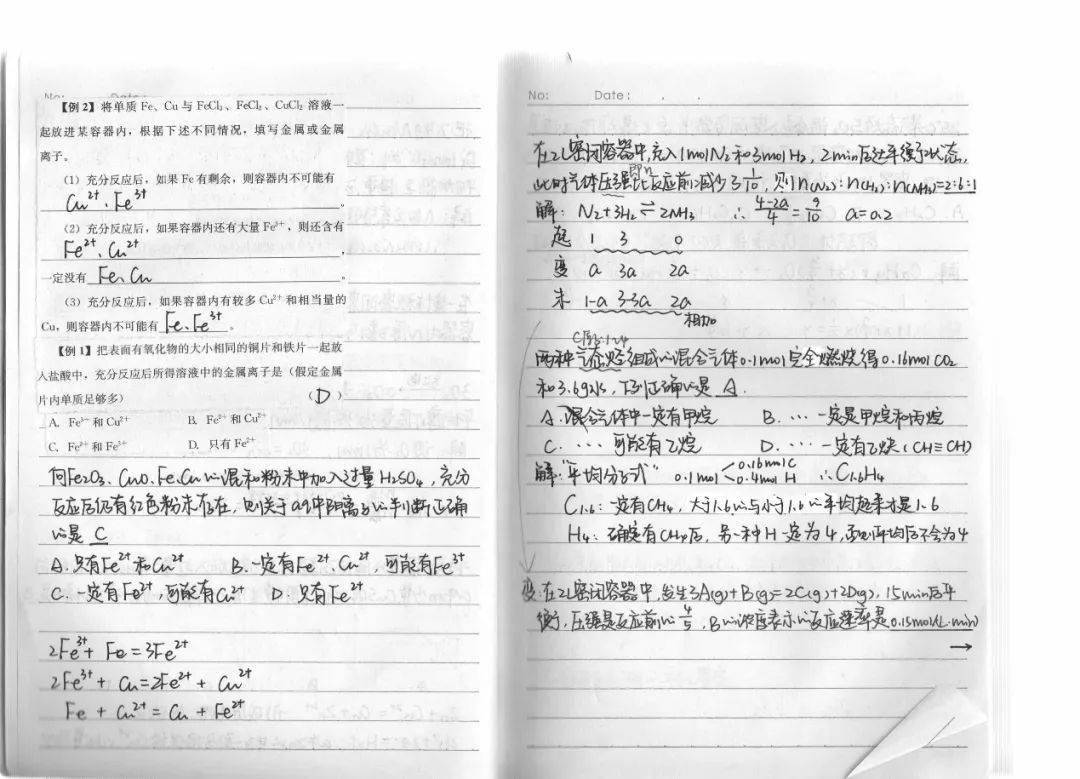 No: Date:
【例2】将单质 Fe、Cu 与 FeCl₃、FeCl₂、CuCl₂ 溶液一
起放进某容器内，根据下述不同情况，填写金属或金属
离子。
(1) 充分反应后，如果 Fe 有剩余，则容器内不可能有
Cu²⁺、Fe³⁺。
(2) 充分反应后，如果容器内还有大量 Fe³⁺，则还含有
Fe²⁺、Cu²⁺，
一定没有 Fe、Cu。
(3) 充分反应后，如果容器内有较多 Cu²⁺ 和相当量的
Cu，则容器内不可能有 Fe、Fe³⁺。
【例1】把表面有氧化物的大小相同的铜片和铁片一起放
入盐酸中，充分反应后所得溶液中的金属离子是（假定金属
片内单质足够多） (D)
A. Fe³⁺ 和 Cu²⁺ B. Fe²⁺ 和 Cu²⁺
C. Fe²⁺ 和 Fe³⁺ D. 只有 Fe²⁺
向Fe₂O₃、CuO、Fe、Cu的混和粉末中加入过量H₂SO₄，充分
反应后仍有红色粉末存在，则关于aq中阳离子的判断正确
的是 C
A. 只有Fe²⁺和Cu²⁺ B. 一定有Fe²⁺、Cu²⁺ 可能有Fe³⁺
C. 一定有Fe²⁺，可能有Cu²⁺ D. 只有Fe²⁺
2Fe³⁺+Fe=3Fe²⁺
2Fe³⁺+Cu=2Fe²⁺+Cu²⁺
Fe+Cu²⁺=Cu+Fe²⁺
No: Date:
在2L密闭容器中，充入1molN₂和3molH₂，2min后达平衡状态，
即n
此时气体压强比反应前减少了1/10，则n(N₂):n(H₂):n(NH₃)=2:6:1
解：N₂+3H₂⇌2NH₃ ∴(4-2a)/4=9/10 a=0.2
起 1 3 0
变 a 3a 2a
末 1-a 3-3a 2a
相加
两种气态烃组成的混合气体0.1mol完全燃烧得0.16molCO₂
和3.6g水，下列正确的是 A.
A. 混合气体中一定有甲烷 B. … 一定是甲烷和丙烷
C. … 可能有乙烷 D. … 一定有乙炔(CH≡CH)
解："平均分子式" 0.1mol 0.16molC 0.4mol H ∴C₁.₆H₄
C₁.₆：一定有CH₄，大于1.6的与小于1.6的平均起来才是1.6
H₄：确定有CH₄后，另一种H一定为4，否则平均后不会为4
变：在2L密闭容器中，发生3A(g)+B(g)=2C(g)+2D(g)，15min后平
衡，压强是反应前的4/5，B的浓度表示的反应速率是0.15mol/(L·min)
→